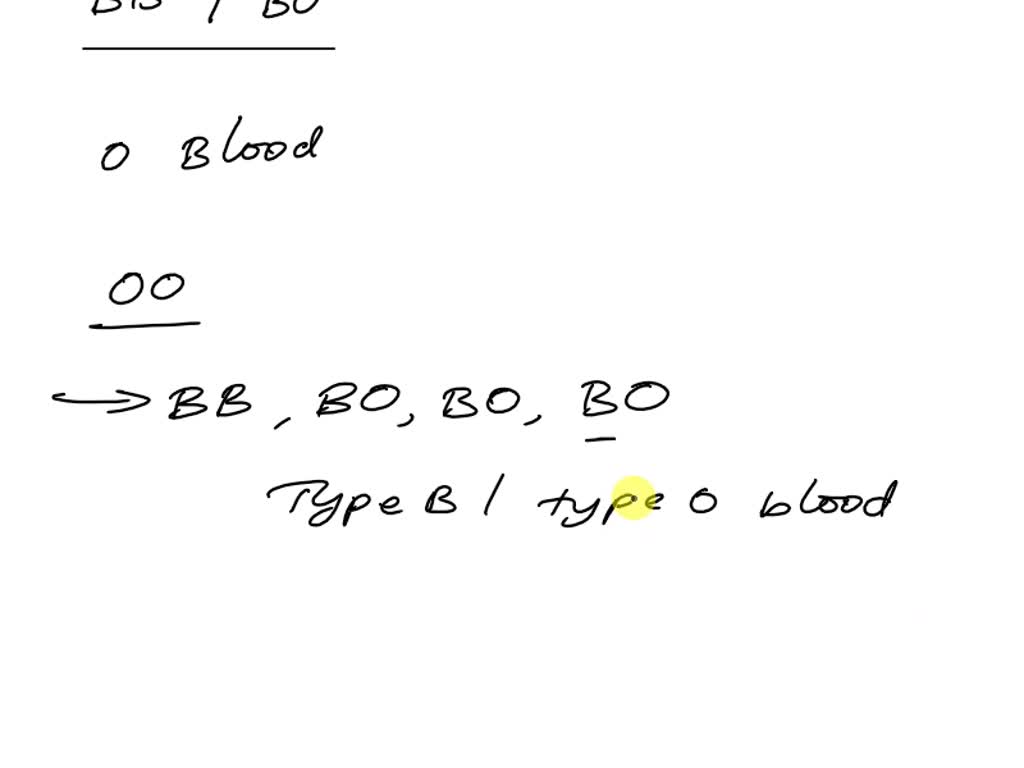 BB / BO
O Blood
OO
→ BB, BO, BO, BO
Type B / type O blood